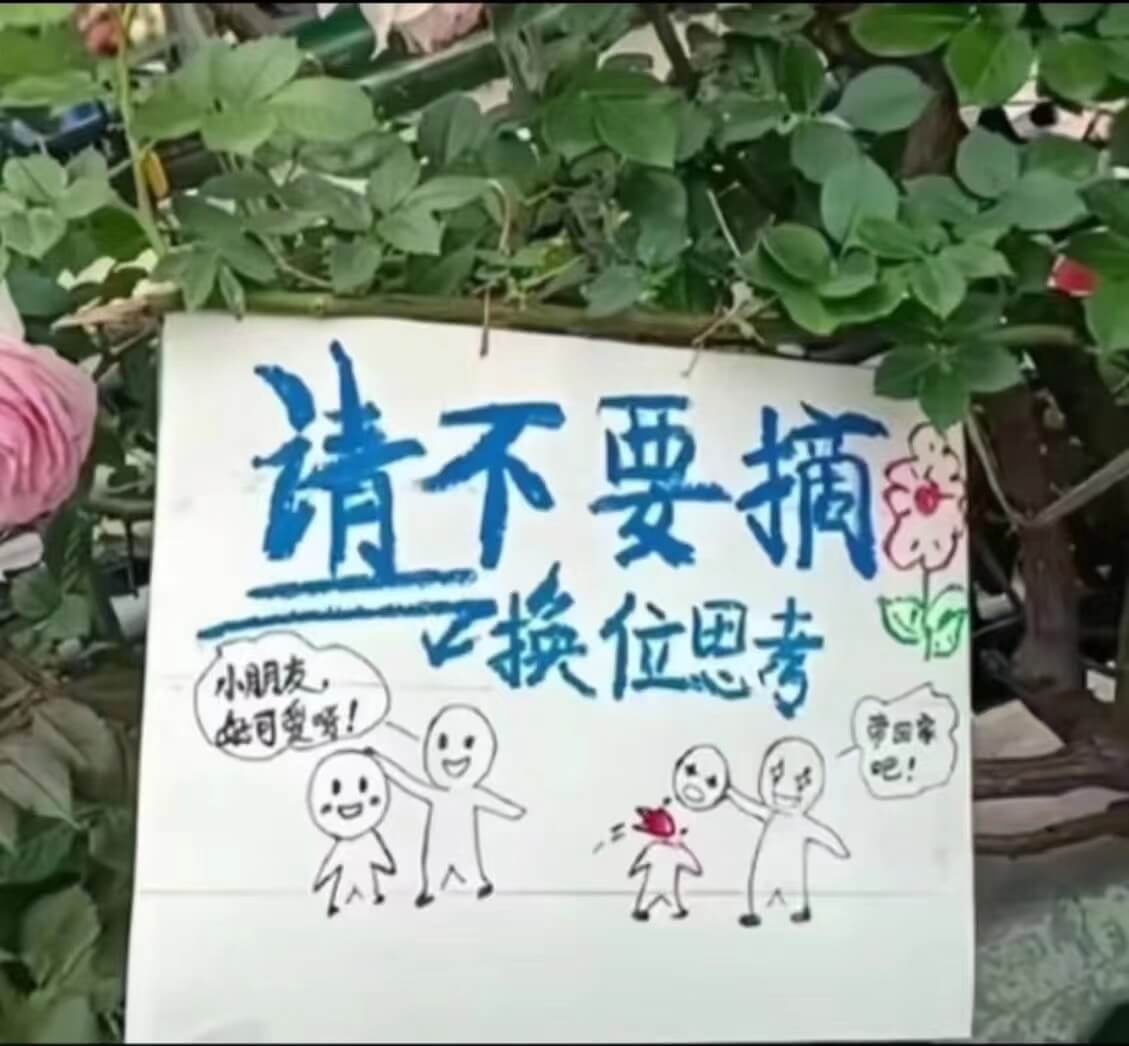 请不要摘
换位思考
小朋友，
好可爱呀！
带回家
吧！